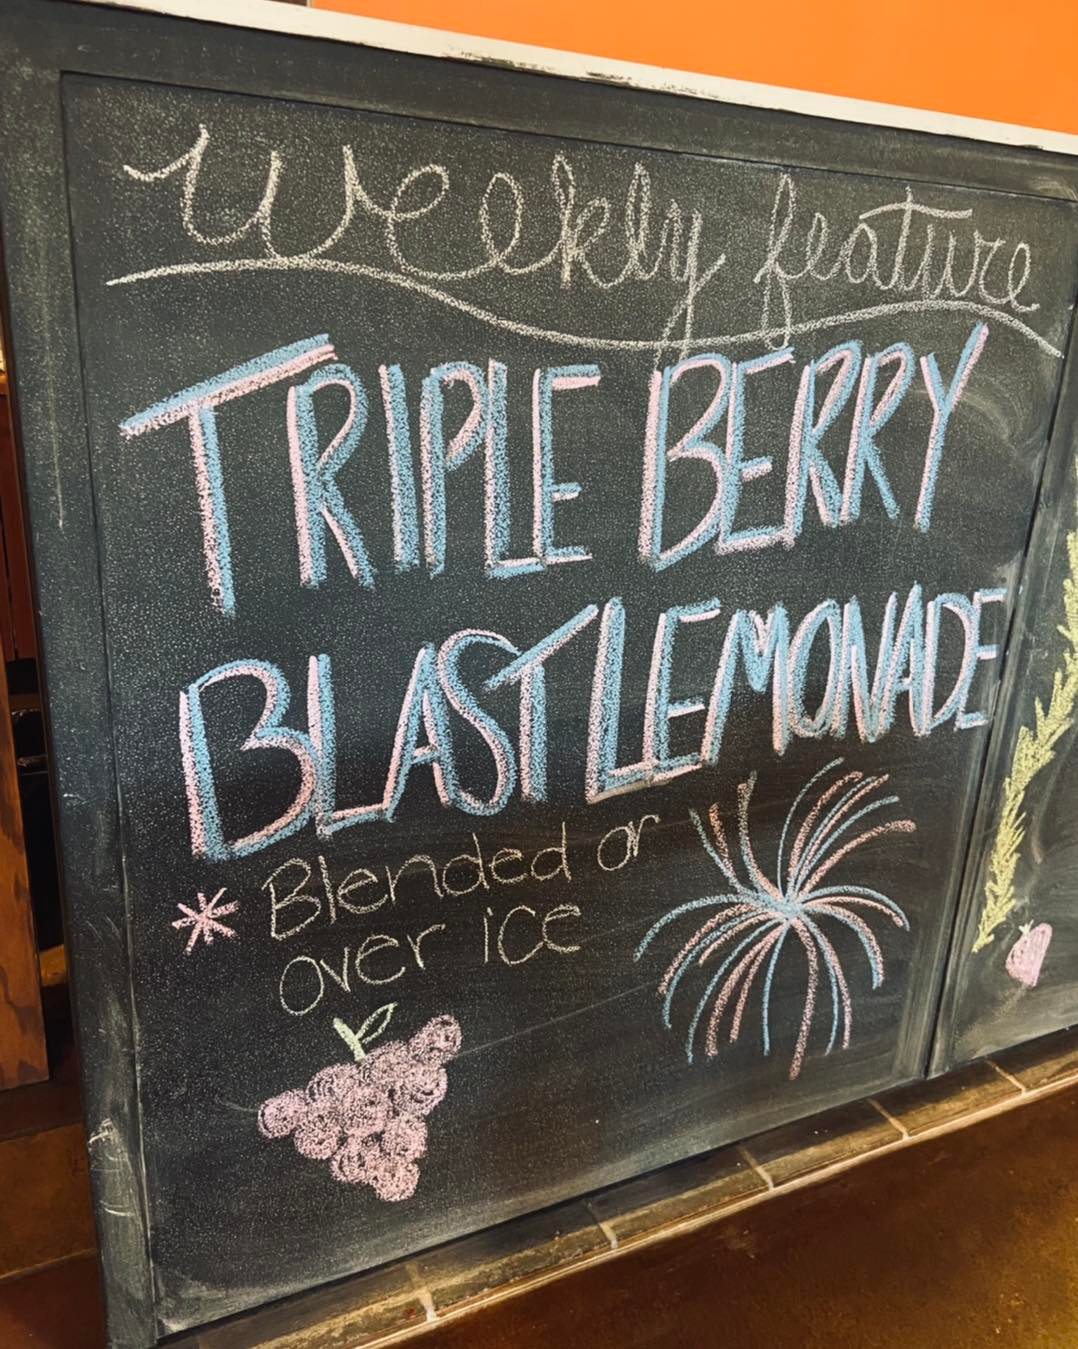 Weekly feature
TRIPLE BERRY
BLAST LEMONADE
* Blended or
over ice